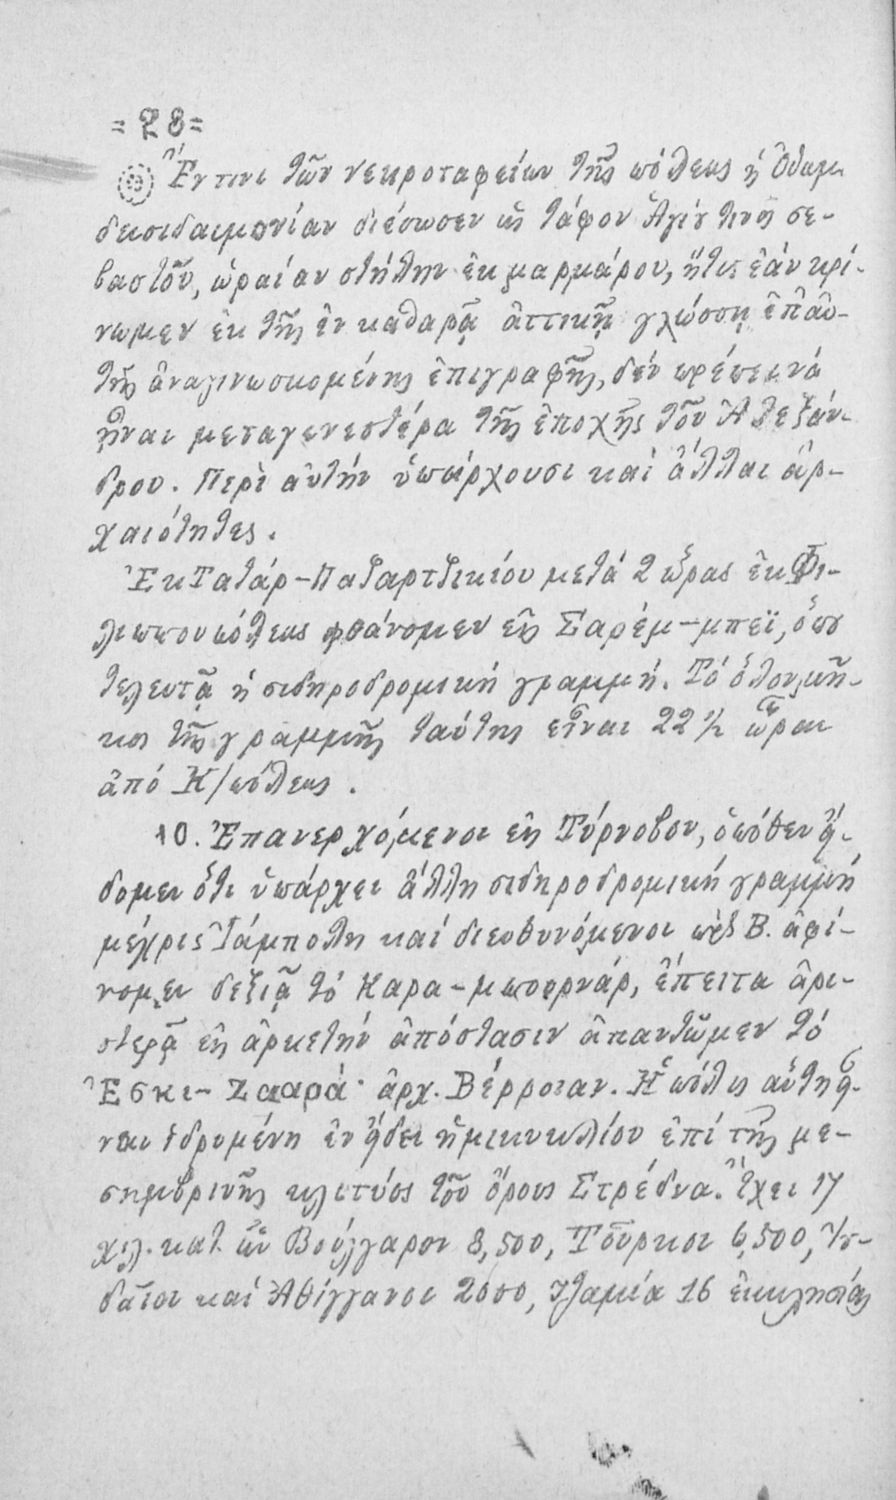 = 28 =
Ἔν τινι τῶν νεκροταφείων τῆς πόλεως ἡ Ὀθωμ.
δεισιδαιμονίαν διέσωσεν ὡς τάφον Ἁγίου τινὸς σε-
βαστοῦ, ὡραίαν στήλην ἐκ μαρμάρου, ἥτις ἐάν κρί-
νωμεν ἐκ τῆς ἐν καθαρᾷ ἀττικῇ γλώσσῃ ἐπ' αὐ-
τῆς ἀναγινωσκομένης ἐπιγραφῆς, δέν πρέπει νά
ἦναι μεταγενεστέρα τῆς ἐποχῆς τοῦ Ἀλεξάν-
δρου. Περὶ αὐτήν ὑπάρχουσι καί ἄλλαι ἀρ-
χαιότητες.
Ἐκ Τατάρ-Παζαρτζικίου μετά 2 ὥρας ἐκ Φι-
λιππουπόλεως φθάνομεν εἰς Σαρέμ-μπεϊ, ὅπου
τελευτᾷ ἡ σιδηροδρομική γραμμή. Τό ὅλον μῆ-
κος τῆς γραμμῆς ταύτης εἶναι 22 ½ ὧραι
ἀπό Κ/πόλεως.
10. Ἐπανερχόμενοι εἰς Τύρνοβον, ὁπόθεν ᾔ-
δομεν ὅτι ὑπάρχει ἄλλη σιδηροδρομική γραμμή
μέχρις Ἰάμπολης καί διευθυνόμενοι πρὸς Β. ἀφί-
νομεν δεξιᾷ τό Καρα-μπουρνάρ, ἔπειτα ἀρι-
στερᾷ εἰς ἀρκετήν ἀπόστασιν ἀπαντῶμεν τό
Ἐσκι-Ζααρά· ἀρχ. Βέρροιαν. Ἡ πόλις αὕτη εἶ-
ναι ἱδρυμένη ἐν εἴδει ἡμικυκλίου ἐπί τῆς με-
σημβρινῆς κλιτύος τοῦ ὄρους Στρέδνα. Ἔχει 17
χιλ. κατ. ὧν Βούλγαροι 8,500, Τοῦρκοι 6,500, Ἰου-
δαῖοι καί Ἀθίγγανοι 2000, τζαμία 16 ἐκκλησίας